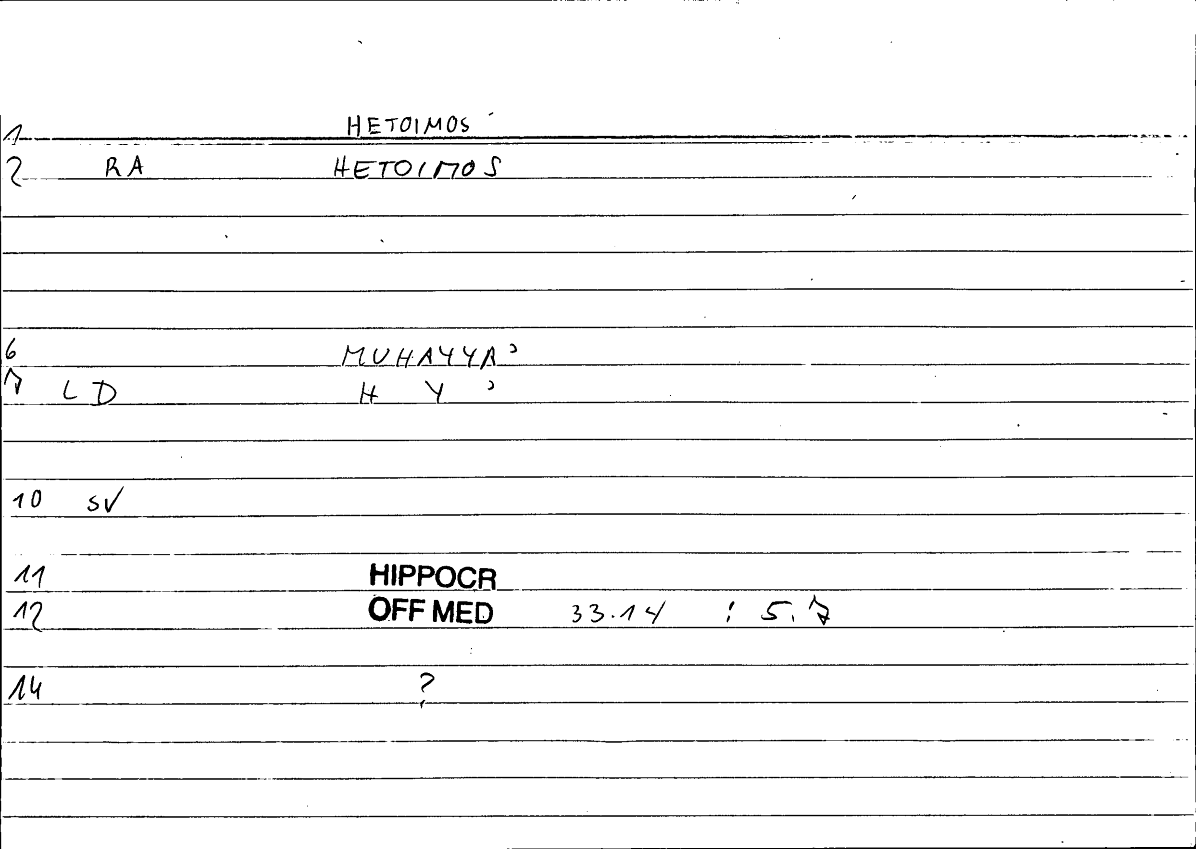 1 HETOIMOS
2 RA HETOIMOS
6 MUHAYYAʾ
7 LD H Y ʾ
10 SV
11 HIPPOCR
12 OFF MED 33.14 : 5.7
14 ?